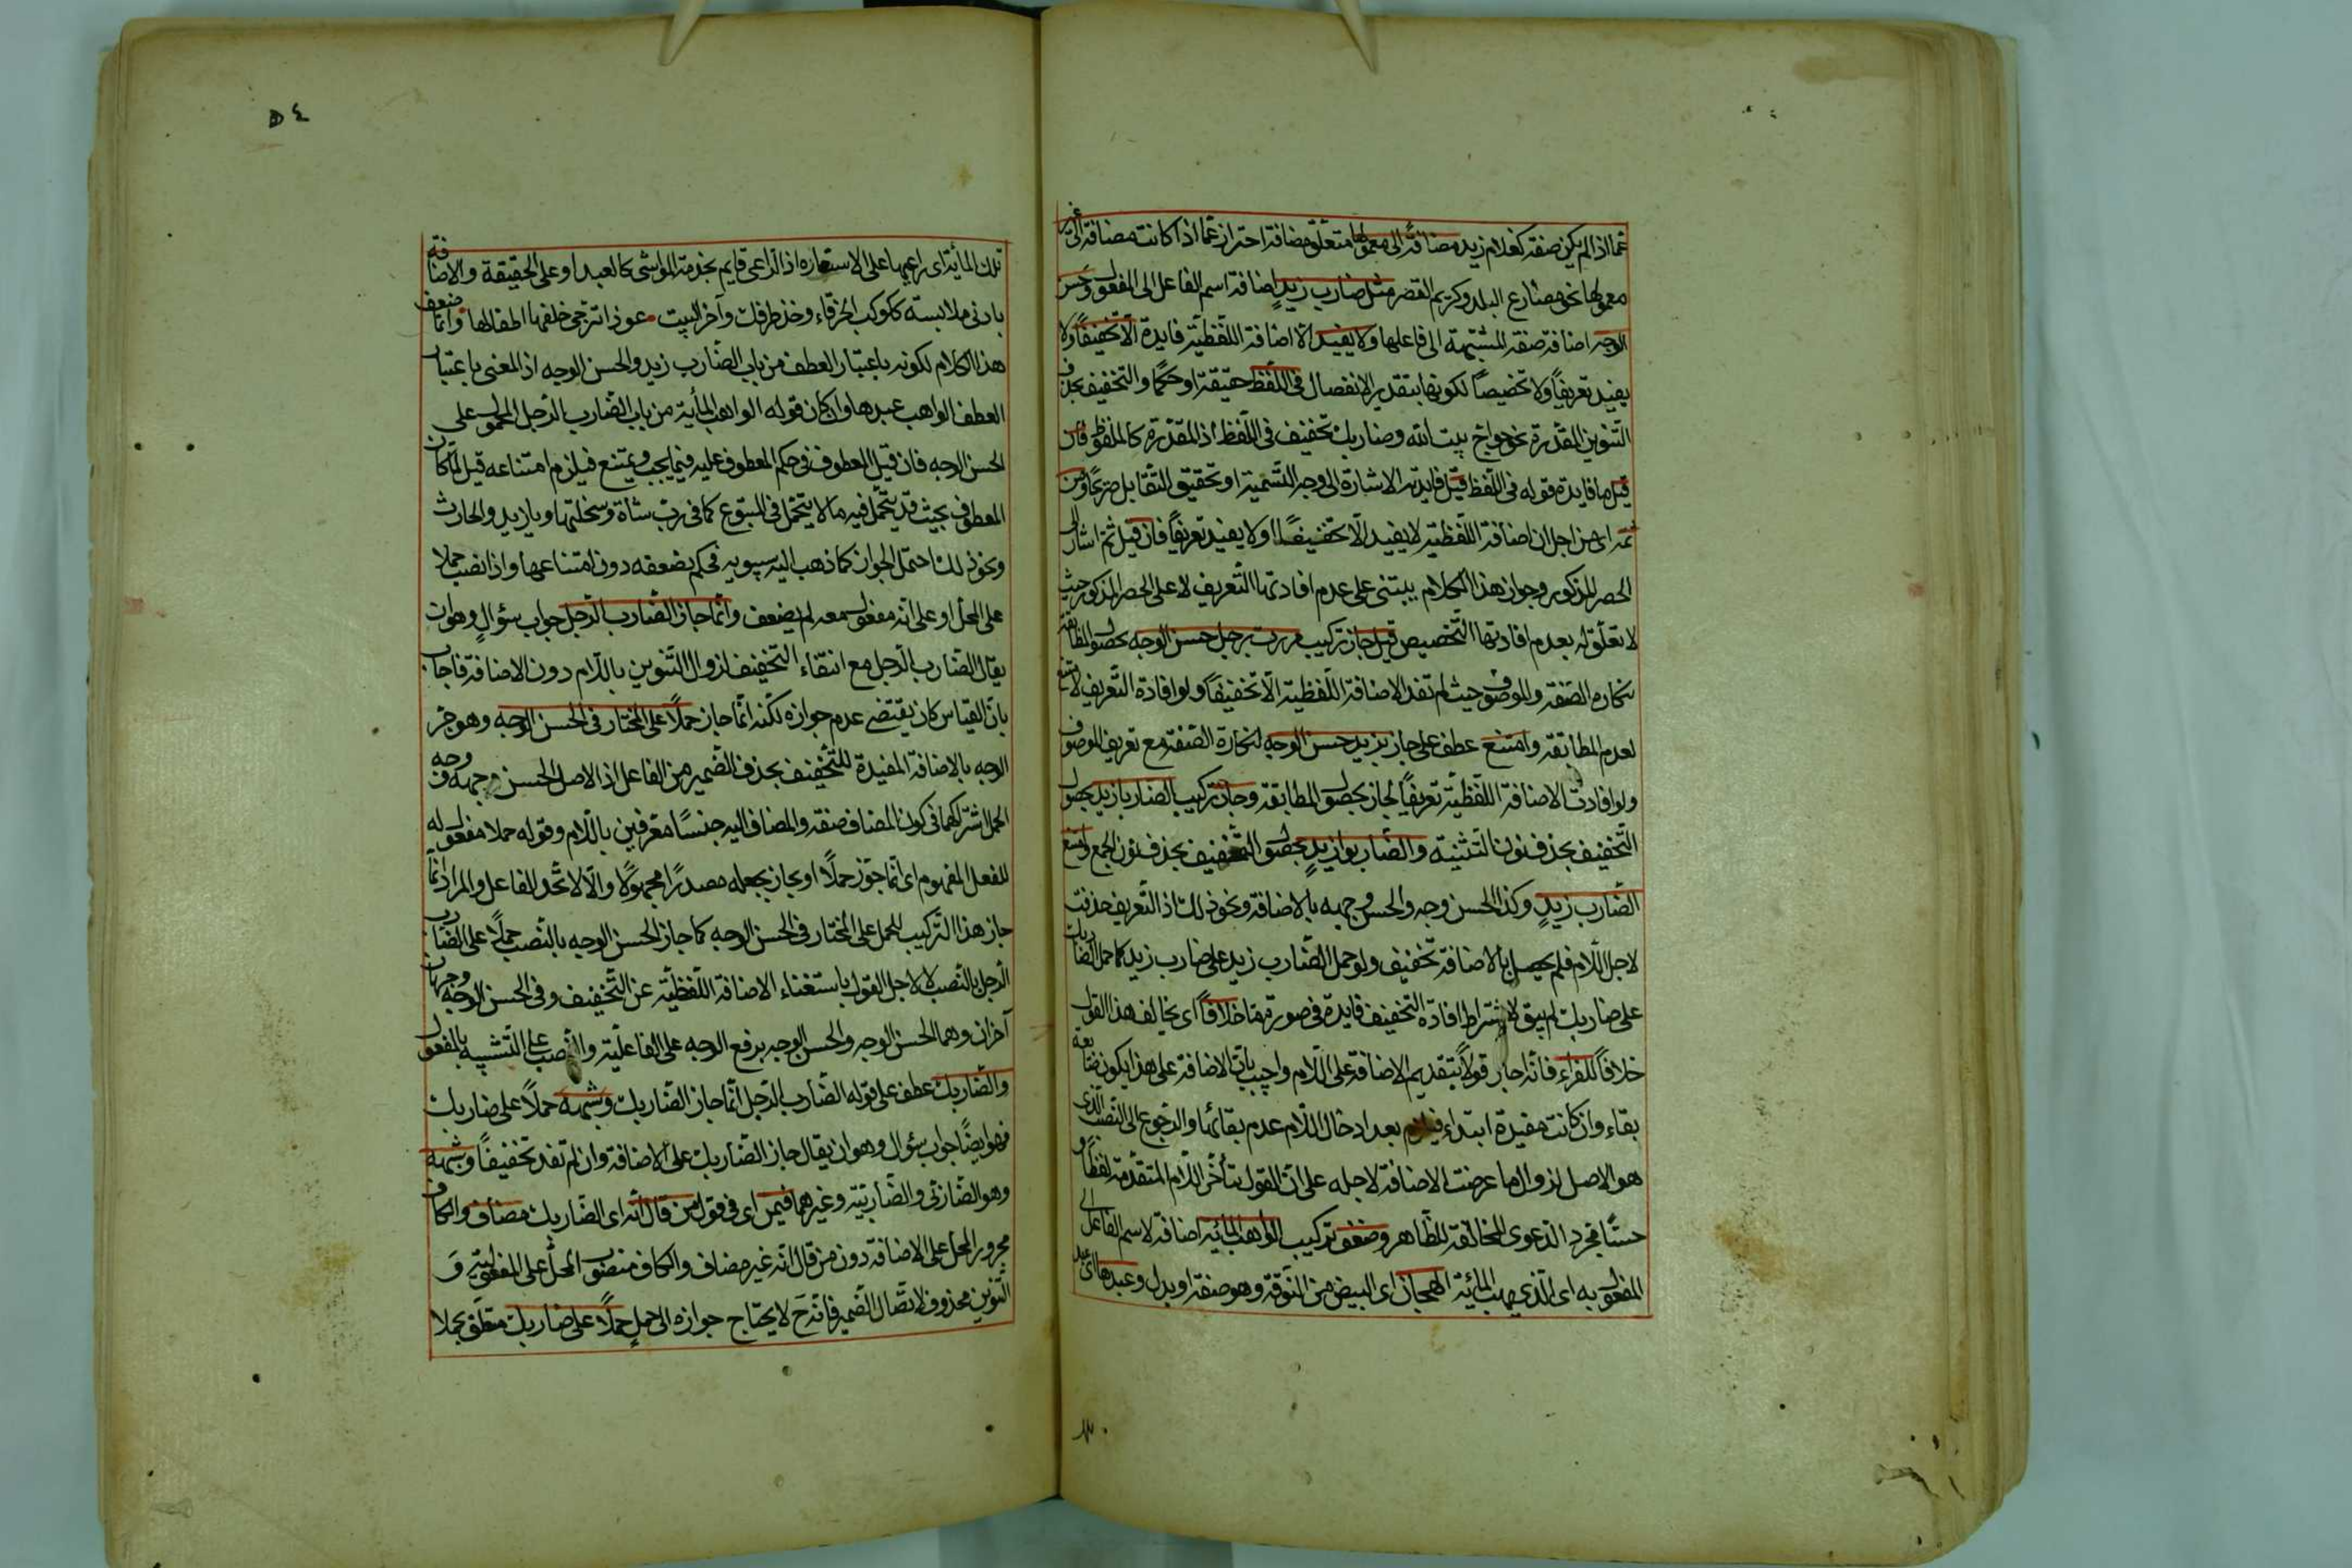 عما اذا لم يكن صفة كغلام زيد مضافة الى معمولها متعلق مضافة احتراز عما اذا كانت مضافة الى غير
معمولها نحو مصارع البلد وكريم القصر مثل ضارب زيد اضافة اسم الفاعل الى المفعول وحسن
الوجه اضافة صفة المشبهة الى فاعلها ولا يفيد الاضافة اللفظية فايدة الا تخفيفا ولا
يفيد تعريفا ولا تخصيصا لكونها بتقدير الانفصال في اللفظ حقيقة او حكما والتخفيف بحذف
التنوين المقدرة نحو حواج بيت الله وضاربك تخفيف في اللفظ اذ المقدرة كالملفوظ فان
قيل ما فايدة قوله في اللفظ قيل فايدته الاشارة الى وجه التسمية او تحقيق التقابل صريحا ومن
ثمه اي من اجل ان اضافة اللفظية لا يفيد الا تخفيفا ولا يفيد تعريفا فان قيل ثم اشار الى
الحصر المذكور وجواز هذا الكلام يبتنى على عدم افادتها التعريف لا على الحصر المذكور حيث
لا تعلق له بعدم افادتها التخصيص قيل جاز تركيب مررت برجل حسن الوجه بحصول المطابقة
بنكارة الصفة والموصوف حيث لم تفد الاضافة اللفظية الا تخفيفا ولو افادة التعريف لامتنع
لعدم المطابقة وامتنع عطف على جاز بزيد حسن الوجه لنكارة الصفة مع تعريف الموصوف
ولو افادت الاضافة اللفظية تعريفا لجاز بحصول المطابقة وجاز تركيب الضاربا زيد بحصول
التخفيف بحذف نون التثنية والضاربو زيد بحصول التخفيف بحذف نون الجمع وامتنع
الضارب زيد وكذا الحسن وجه والحسن وجهه بالاضافة ونحو ذلك اذ التعريف حذفت
لاجل اللام فلم يحصل بالاضافة تخفيف ولو حمل الضارب زيد على ضارب زيد كما حمل الضاربك
على ضاربك لم يبق لاشتراط افادة التخفيف فايدة في صورة ما خلافا اي يخالف هذا القول
خلافا للفراء فانه جاز قولا بتقديم الاضافة على اللام واجيب بان الاضافة على هذا يكون ضائعة
بقاء وان كانت مفيدة ابتداء فيلزم بعد ادخال اللام عدم بقائها والرجوع الى النصب الذى
هو الاصل لزوال ما عرضت الاضافة لاجله على ان القول بتأخر اللام المتقدمة لفظا و
حسا مجرد الدعوى المخالفة للظاهر وضعف تركيب الواهب المائية اضافة لاسم الفاعل الى
المفعول به اي الذي يهب المائية الهجان اي البيض من النوقة وهو صفة او بدل وعبدها اى عبد
تلك المأية اي راعيها على الاستعارة اذ الراعى قايم بخدمة المواشى كالعبد او على الحقيقة والاضافة
بادنى ملابسة ككوكب الخرقاء وخذ طرفك وآخر البيت عوذا تزجى خلفها اطفالها وانما ضعف
هذا الكلام لكونه باعتبار العطف من باب الضارب زيد والحسن الوجه اذ المعنى باعتبار
العطف الواهب عبدها وان كان قوله الواهب المأية من باب الضارب الرجل المحمول على
الحسن الوجه فان قيل المعطوف في حكم المعطوف عليه فيما يجب ويمتنع فيلزم امتناعه قيل لما كان
المعطوف بحيث قد يتحمل فيه ما لا يتحمل في المتبوع كما في رب شاة وسخلتها ويا زيد والحارث
ونحو ذلك احتمل الجواز كما ذهب اليه سيبويه فحكم بضعفه دون امتناعها واذا نصب حملا
على المحل او على انه مفعول معه لم يضعف وانما جاز الضارب الرجل جواب سؤال وهو ان
يقال الضارب الرجل مع انتفاء التخفيف لزوال التنوين باللام دون الاضافة فاجاب
بان القياس كان يقتضى عدم جوازه لكنه انما جاز حملا على المختار في الحسن الوجه وهو جر
الوجه بالاضافة المفيدة للتخفيف بحذف الضمير من الفاعل اذ الاصل الحسن وجهه ووجه
الحمل اشتراكهما في كون المضاف صفة والمضاف اليه جنسا معرفين باللام وقوله حملا مفعول له
للفعل المفهوم اى انما جوز حملا او بجاز بجعله مصدرا مجهولا والا لا تحد للفاعل والمراد انما
جاز هذا التركيب للحمل على المختار في الحسن الوجه كما جاز الحسن الوجه بالنصب حملا على الضارب
الرجل بالنصب لا لاجل القول باستغناء الاضافة اللفظية عن التخفيف وفى الحسن الوجه وجهان
آخران وهما الحسن الوجه والحسن الوجه برفع الوجه على الفاعلية والنصب على التشبيه بالمفعول
والضاربك عطف على قوله الضارب الرجل انما جاز الضاربك وشبهه حملا على ضاربك
فهو ايضا جواب سؤال وهو ان يقال جاز الضاربك على الاضافة وان لم تفد تخفيفا وشبهه
وهو الضاربى والضاربيه وغيرهما فيمن اى في قول من قال انه اى الضاربك مضاف والكاف
مجرور المحل على الاضافة دون من قال انه غير مضاف والكاف منصوب المحل على المفعولية و
التنوين محذوف لاتصال الضمير فانه ح لا يحتاج جوازه الى حمل حملا على ضاربك متعلق بحملا
٥٤